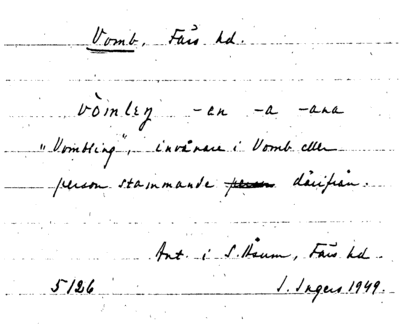 Vomb, Färs hd.
vòmleŋ -en -a -ana
"Vombling", invånare i Vomb eller
person stammande därifrån.
Ant. i S. Åsum, Färs hd.
5126 I. Ingers 1949.